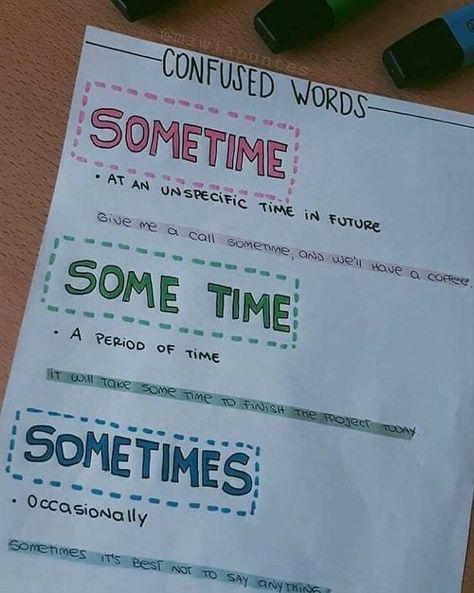 @miwiapuntes
CONFUSED WORDS
SOMETIME
• AT AN UNSPECIFIC TIME IN FUTURE
Give me a call sometime, and we'll have a coffee.
SOME TIME
• A PERIOD OF TIME
It will take some time to finish the project today.
SOMETIMES
• Occasionally
Sometimes it's best not to say anything.